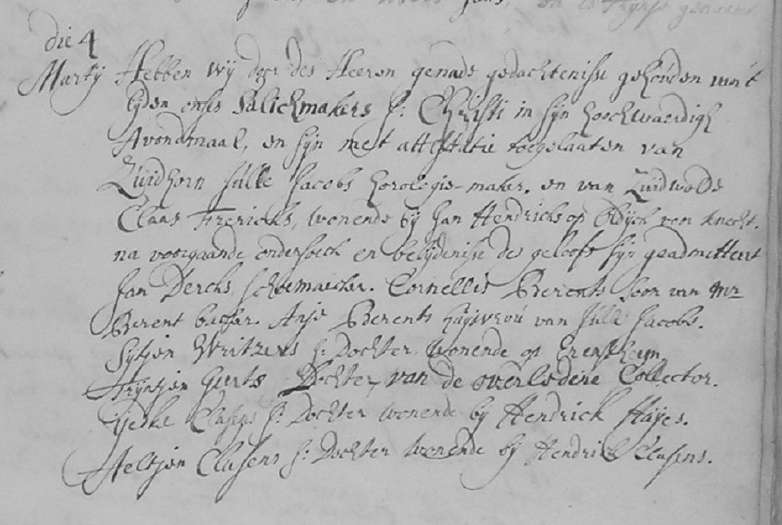 die 4
Martij Hebben wij door des Heeren genade gedachtenisse gehouden van't
lijden onses Salichmakers J: Christi in sijn hoochwaerdigh
Avondmaal, en sijn met attestatie toegelaaten van
Zuidhorn Sikke Jacobs horologie-maker. en van Zuidwolde
Claas Frericks, wonende bij Jan Hendrichs op voor knecht.
na voorgaande ondersoeck en belijdenisse des geloofs sijn geadmitteert
Jan Dercks, schoemaecker. Cornellis Berents soon van Mr
Berent backer. Anje Berents huisvrou van Sikke Jacobs.
Sijtjen Writzers J: Dochter wonende op Erensheijn
Trijntjen Geerts Dochter van de overledene Collector.
Yeske Clasens J: Dochter wonende bij Hendrick Haijes.
Aeltjen Clasens J: Dochter wonende bij Hendrik Clasens.